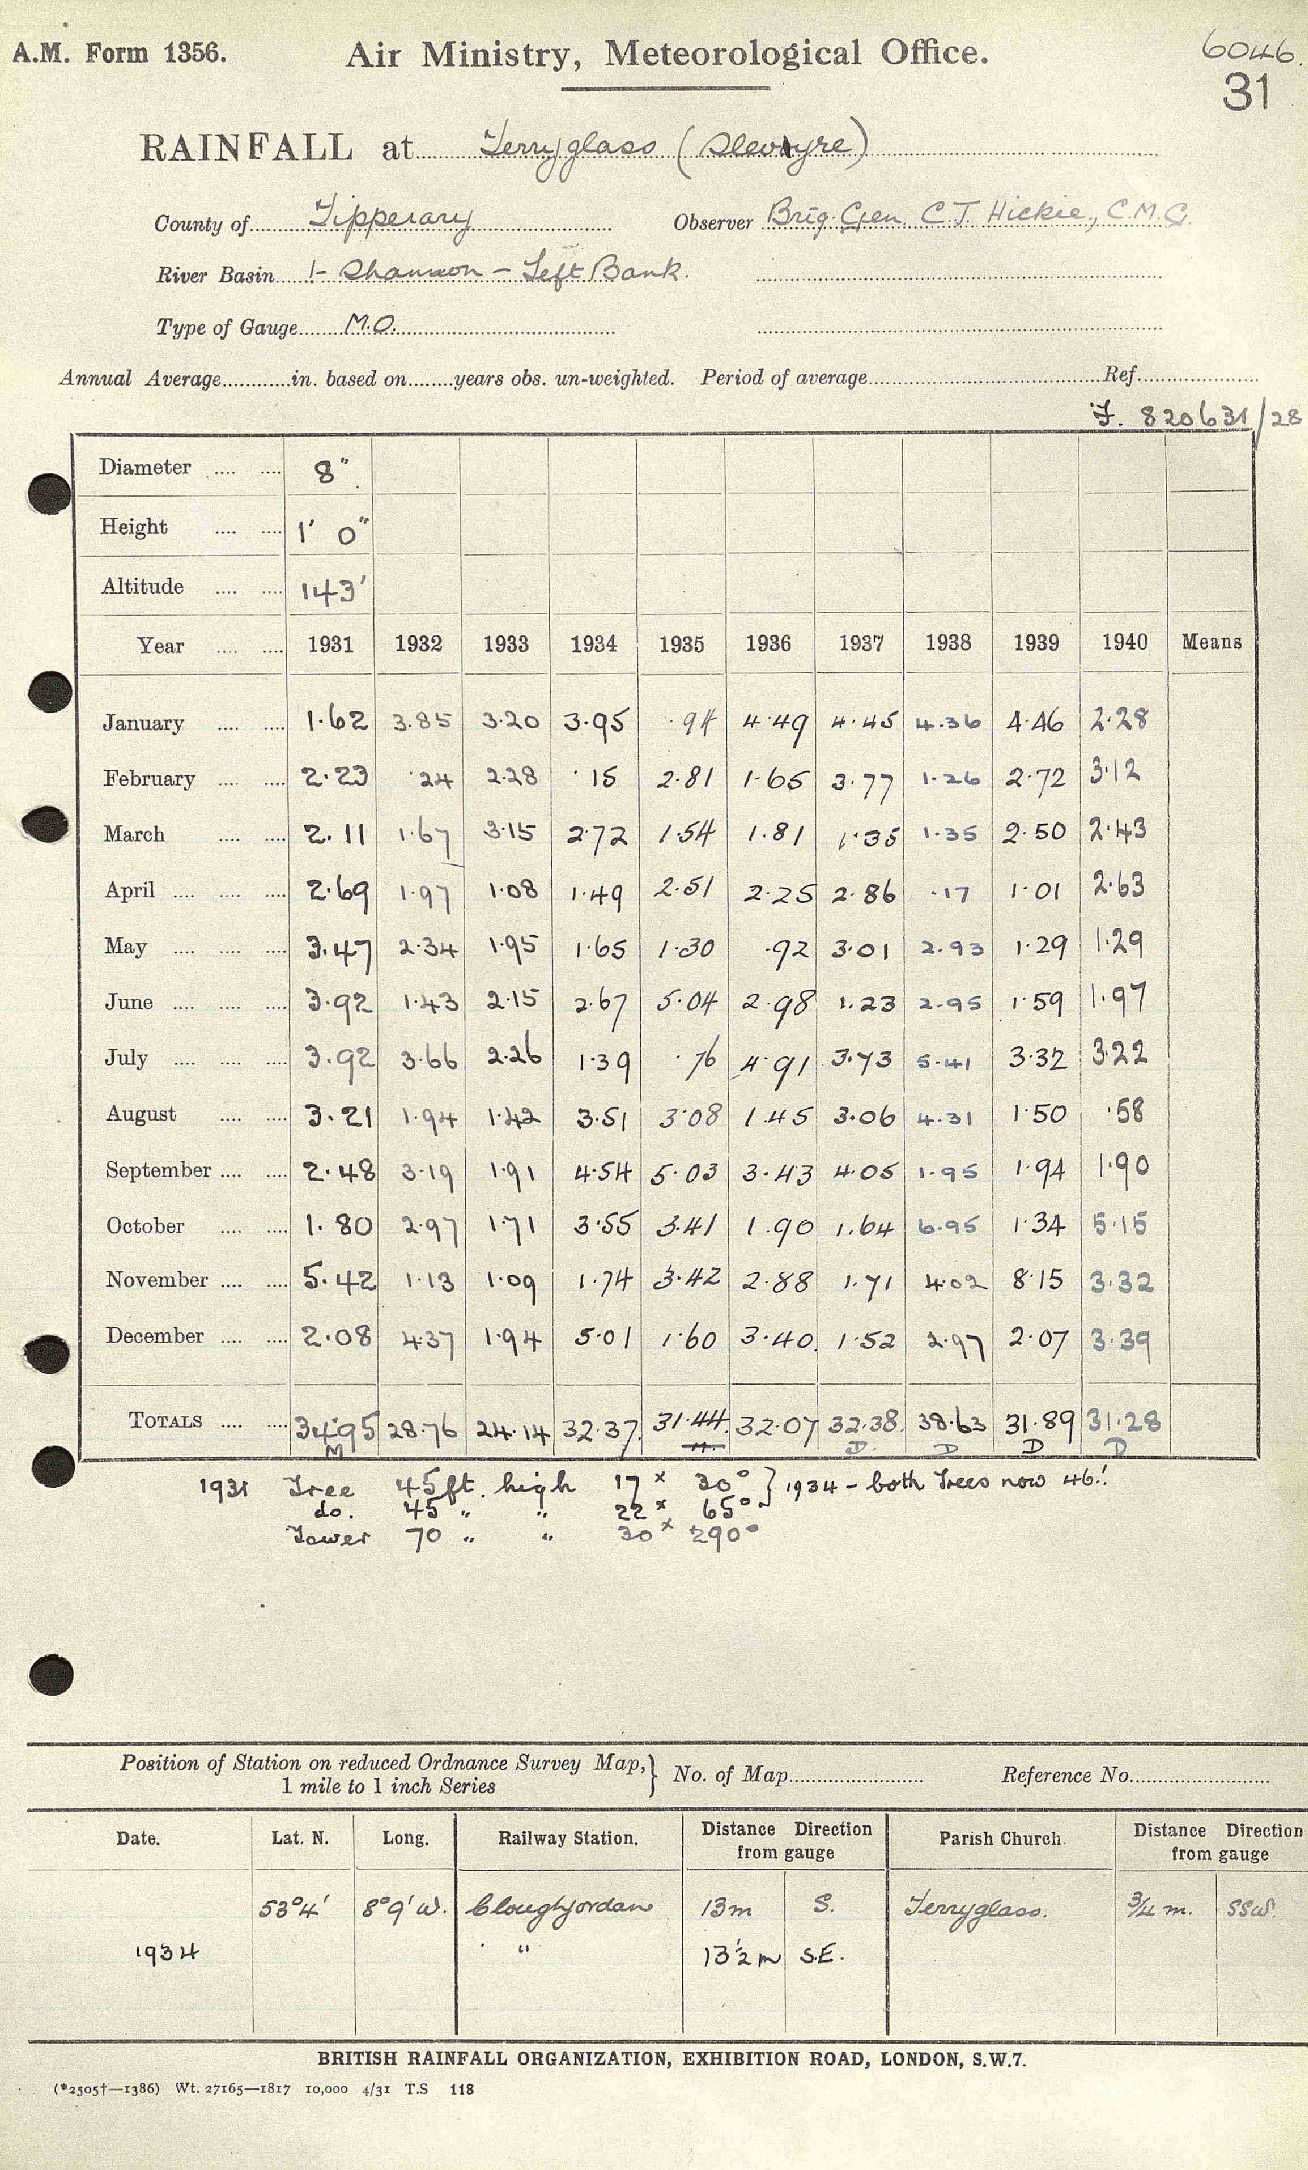 A.M. Form 1356. Air Ministry, Meteorological Office. 6046.
31
RAINFALL at Terryglass (Slevoyre)
County of Tipperary Observer Brig. Gen. C. J. Hickie, C.M.G.
River Basin 1- Shannon - Left Bank.
Type of Gauge M.O.
Annual Average in. based on years obs. un-weighted. Period of average Ref.
F. 820631/28
Diameter 8"
Height 1' 0"
Altitude 143'
Year 1931 1932 1933 1934 1935 1936 1937 1938 1939 1940 Means
January 1.62 3.85 3.20 3.95 .94 4.49 4.45 4.36 4.46 2.28
February 2.23 .24 2.28 .15 2.81 1.65 3.77 1.26 2.72 3.12
March 2.11 1.67 3.15 2.72 1.54 1.81 1.35 1.35 2.50 2.43
April 2.69 1.97 1.08 1.49 2.51 2.25 2.86 .17 1.01 2.63
May 3.47 2.34 1.95 1.65 1.30 .92 3.01 2.93 1.29 1.29
June 3.92 1.43 2.15 2.67 5.04 2.98 1.23 2.95 1.59 1.97
July 3.92 3.66 2.26 1.39 .76 4.91 3.73 5.41 3.32 3.22
August 3.21 1.94 1.42 3.51 3.08 1.45 3.06 4.31 1.50 .58
September 2.48 3.19 1.91 4.54 5.03 3.43 4.05 1.95 1.94 1.90
October 1.80 2.97 1.71 3.55 3.41 1.90 1.64 6.95 1.34 5.15
November 5.42 1.13 1.09 1.74 3.42 2.88 1.71 4.02 8.15 3.32
December 2.08 4.37 1.94 5.01 1.60 3.40 1.52 2.97 2.07 3.39
TOTALS 34.95 28.76 24.14 32.37 31.44 32.07 32.38 38.63 31.89 31.28
M D D D D
1931 Tree 45ft. high 17 x 30° } 1934 - both trees now 46'.
do. 45 " " 22 x 65°
Tower 70 " " 30 x 290°
Position of Station on reduced Ordnance Survey Map, } No. of Map Reference No.
1 mile to 1 inch Series
Date. Lat. N. Long. Railway Station. Distance Direction from gauge Parish Church. Distance Direction from gauge
53°4' 8°9' W. Cloughjordan 13m S. Terryglass. 3/4 m. SSW.
1934 " 13½ m S.E.
BRITISH RAINFALL ORGANIZATION, EXHIBITION ROAD, LONDON, S.W.7.
(*2505†—1386) Wt. 27165—1817 10,000 4/31 T.S 118